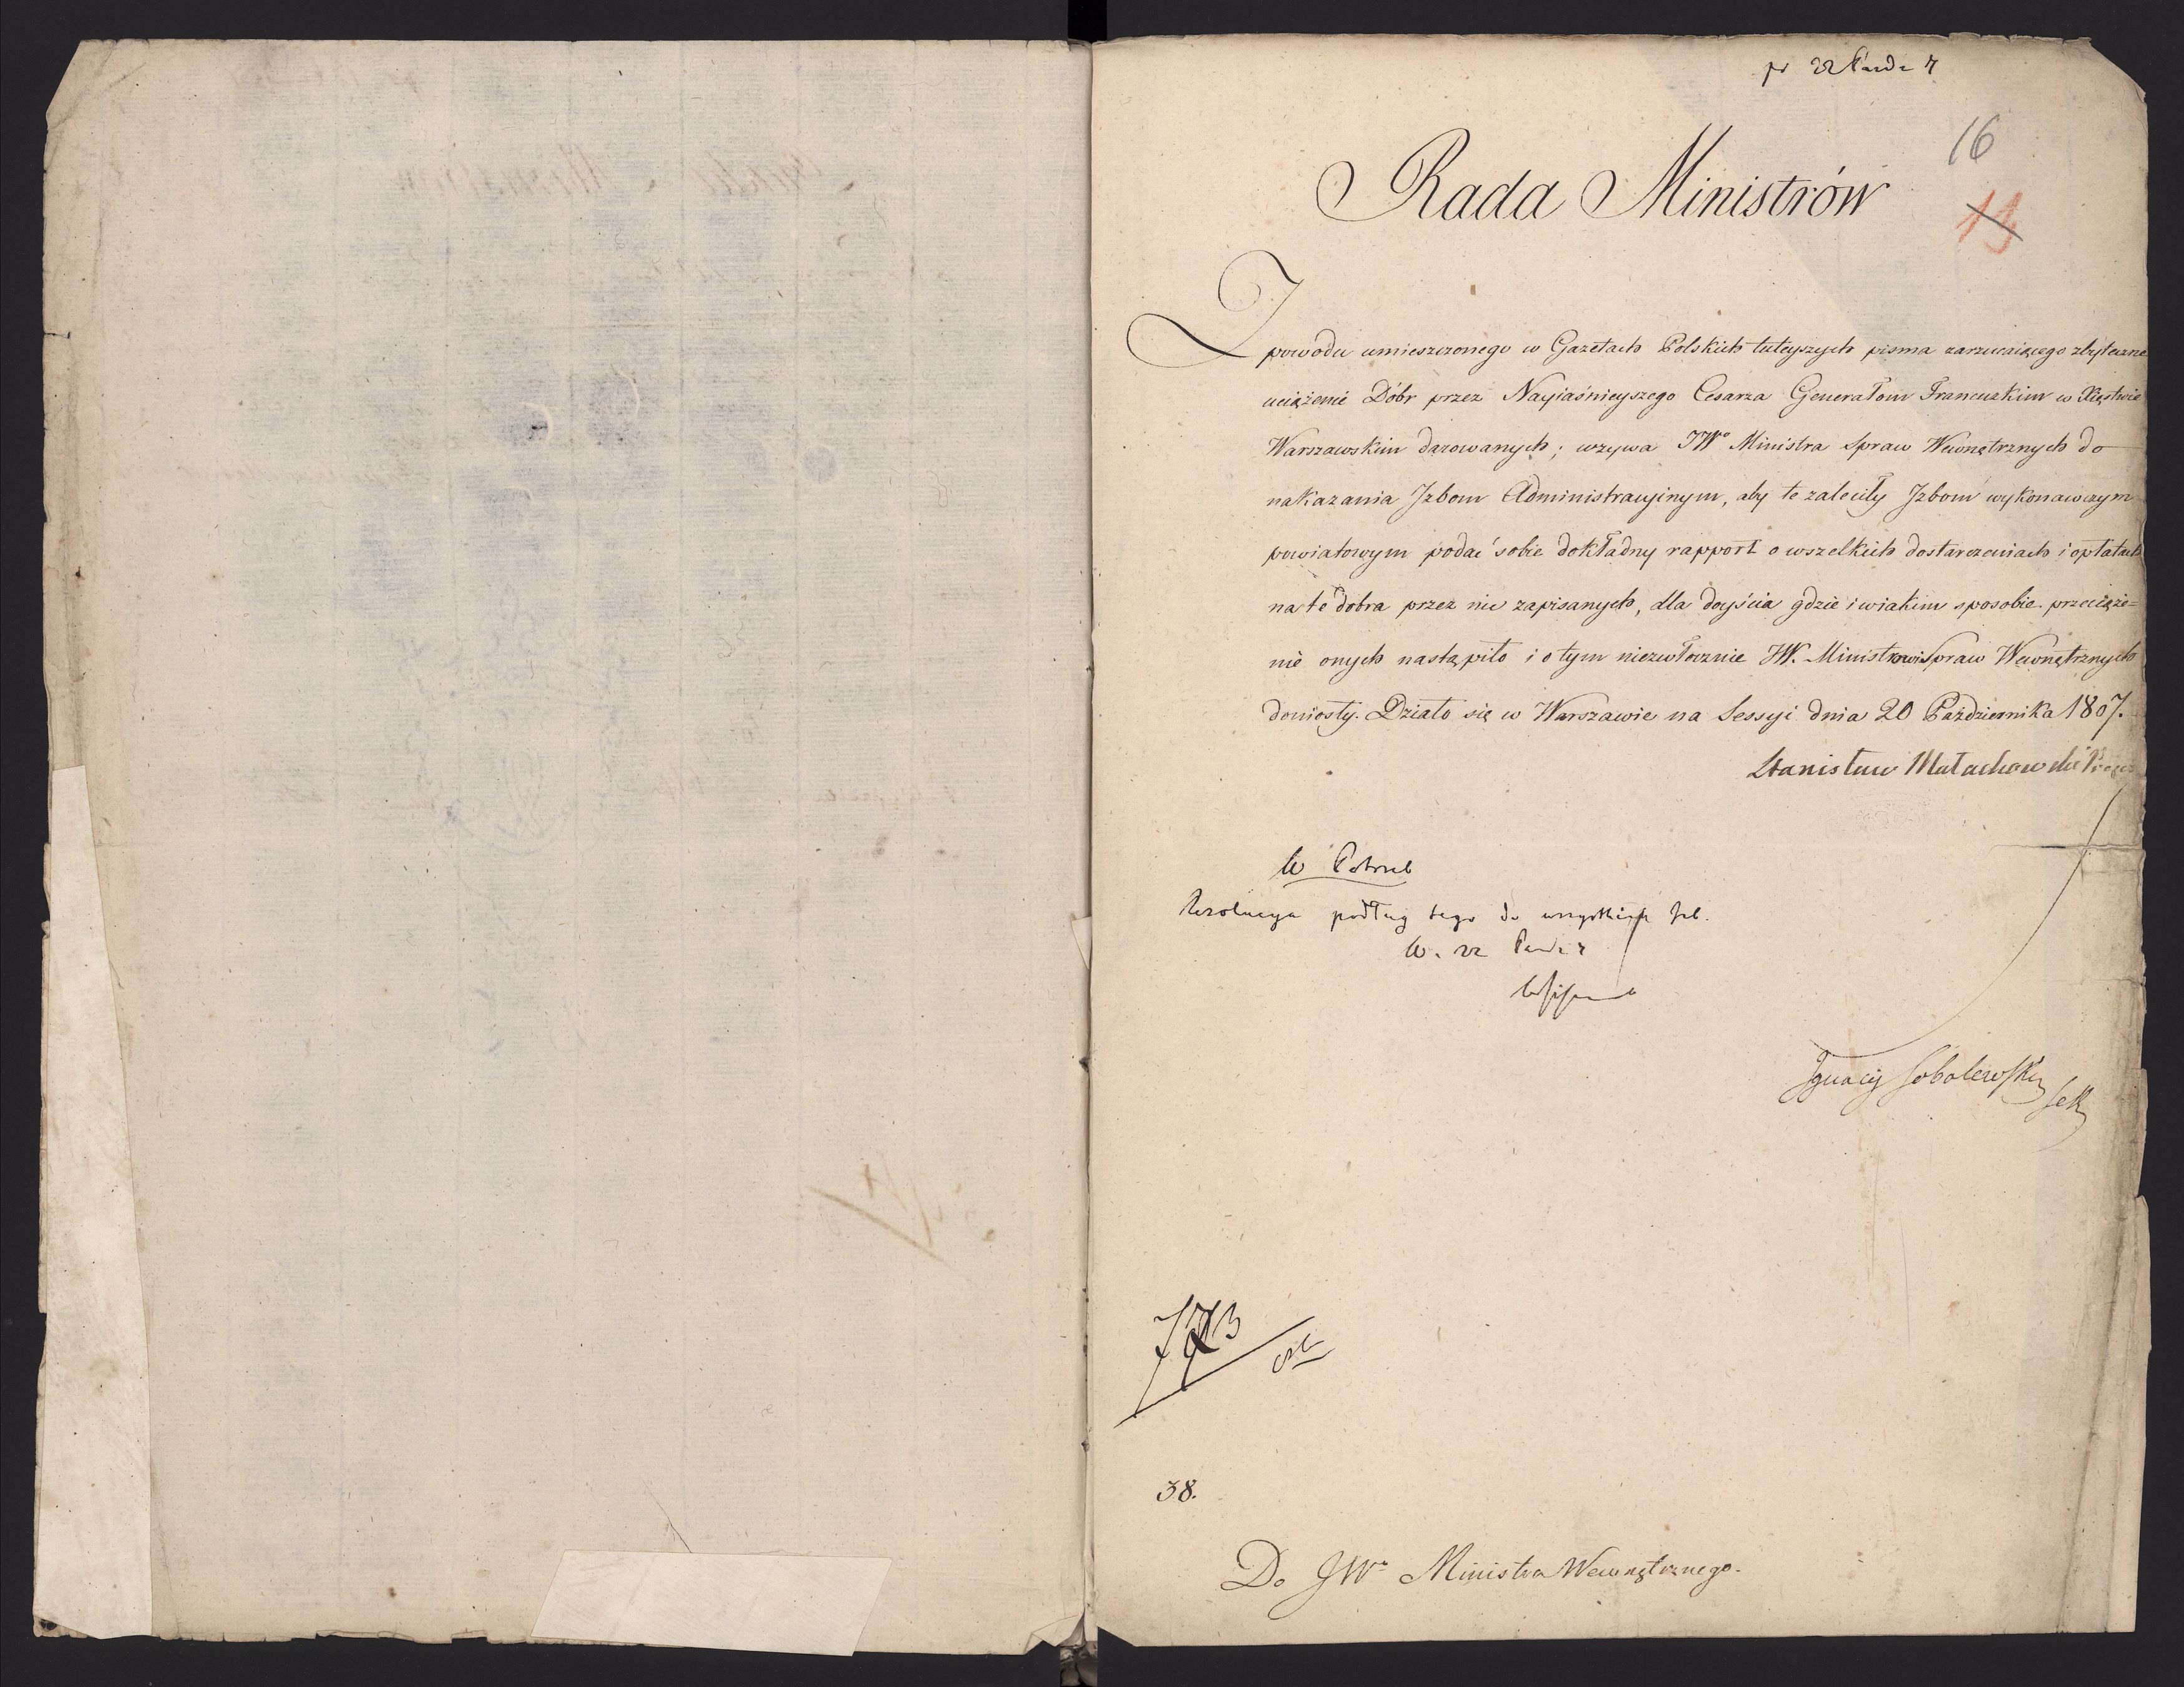 pr 22 Paźdz 7
16
Rada Ministrów
Z powodu umieszczonego w Gazetach Polskich tuteyszych pisma zarzucaiącego zbyteczne
uciążenie Dóbr przez Nayiaśnieyszego Cesarza Generałom Francuzkim w Xięstwie
Warszawskim darowanych; wzywa JWo Ministra Spraw Wewnętrznych do
nakazania Jzbom Administracyinym, aby te zaleciły Jzbom wykonawczym
powiatowym podać sobie dokładny rapport o wszelkich dostarczeniach i opłatach
na te dobra przez nie zapisanych, dla doyścia gdzie i wiakim sposobie przeciąże=
nie onych nastąpiło i o tym niezwłocznie JW. Ministrowi Spraw Wewnętrznych
doniosły. Działo się w Warszawie na Sessyi dnia 20 Października 1807.
Stanisław Małachowski Prezes
Rezolucya podług tego do wszystkich Jzb.
W. 22 Paźdz 7
Ignacy Sobolewski
Sek
38.
Do JWo Ministra Wewnętrznego.